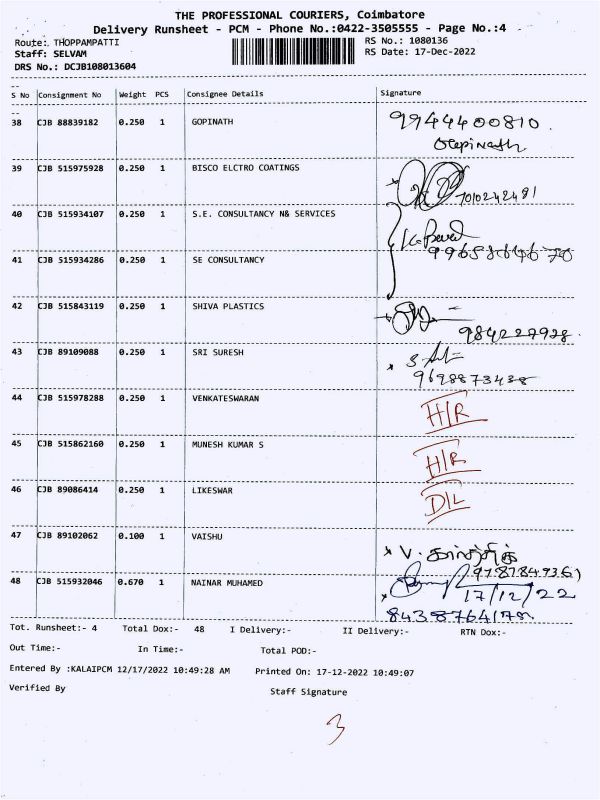 THE PROFESSIONAL COURIERS, Coimbatore
Delivery Runsheet - PCM - Phone No.:0422-3505555 - Page No.:4
Route: THOPPAMPATTI
RS No.: 1080136
Staff: SELVAM
RS Date: 17-Dec-2022
DRS No.: DCJB108013604
S No Consignment No Weight PCS Consignee Details Signature
38 CJB 88839182 0.250 1 GOPINATH 9944400810
Gopinath
39 CJB 515975928 0.250 1 BISCO ELCTRO COATINGS
7010242481
40 CJB 515934107 0.250 1 S.E. CONSULTANCY N& SERVICES
41 CJB 515934286 0.250 1 SE CONSULTANCY
42 CJB 515843119 0.250 1 SHIVA PLASTICS
984227928
43 CJB 89109088 0.250 1 SRI SURESH
9698873438
44 CJB 515978288 0.250 1 VENKATESWARAN H/R
45 CJB 515862160 0.250 1 MUNESH KUMAR S H/R
46 CJB 89086414 0.250 1 LIKESWAR D/L
47 CJB 89102062 0.100 1 VAISHU V.
48 CJB 515932046 0.670 1 NAINAR MUHAMED 17/12/22
Tot. Runsheet:- 4 Total Dox:- 48 I Delivery:- II Delivery:- RTN Dox:-
Out Time:- In Time:- Total POD:-
Entered By :KALAIPCM 12/17/2022 10:49:28 AM Printed On: 17-12-2022 10:49:07
Verified By Staff Signature
3